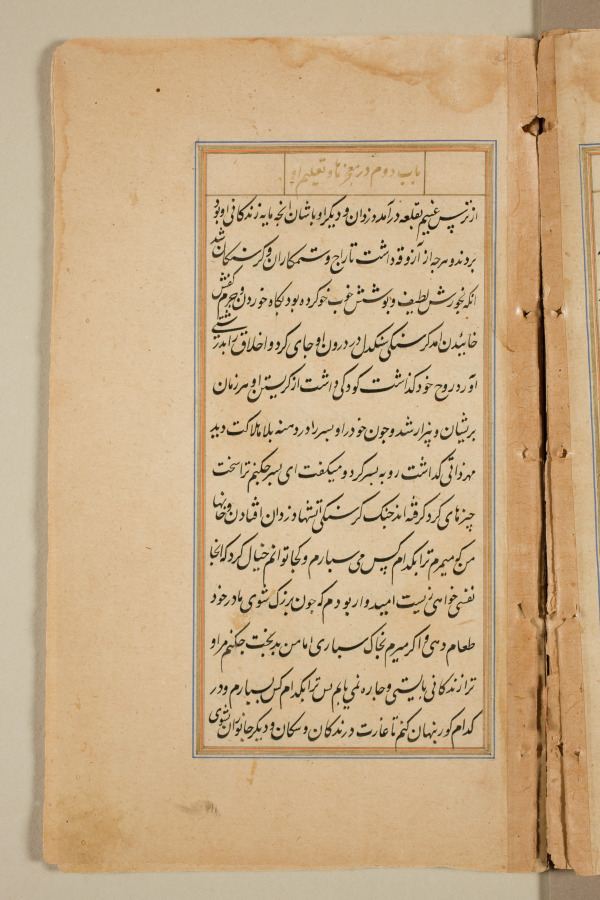 باب دوم در معجزها و تعلیم او
از ترس غنیم بقلعه درآمد دزدان و دیگر اوباشان انجه مایه زندکانی او بود
بردند و هرجه از آزوقه داشت تاراج و ستمکاران و کرسنکان شد
انکه بخورش لطیف و بوشش خوب خو کرده بود بکاه خوردن و جرم کفش
خاییدن امد کرسنکی سنکدل در درون او جای کرد و اخلاق را بدرشتی
آورد روح خود کذاشت کودکی داشت از کریستن او هر زمان
بریشان و بیزار شد و جون خود را و بسر را در دهنه بلا هلاکت دید
مهر ذاتی کذاشت رو به بسر کرد و میکفت ای بسر جکنم ترا سخت
چیزهای کرد کرفته اند جنک کرسنکی آتشها دزدان افتادن خانها
من که میمیرم ترا بکدام کس می سبارم و کجا توانم خیال کرد که انجا
نفسی خواهی زیست امیدوار بودم که چون بزرک شوی مادر خود
طعام دهی و اکر میرم بخاک سباری اما من بدبخت جکنم مرا و
ترا زندکانی بایستی و جاره نمی یابم بس ترا بکدام کس بسبارم و در
کدام کور بنهان کنم تا غارت درندکان و سکان و دیکر جانوران نشوی